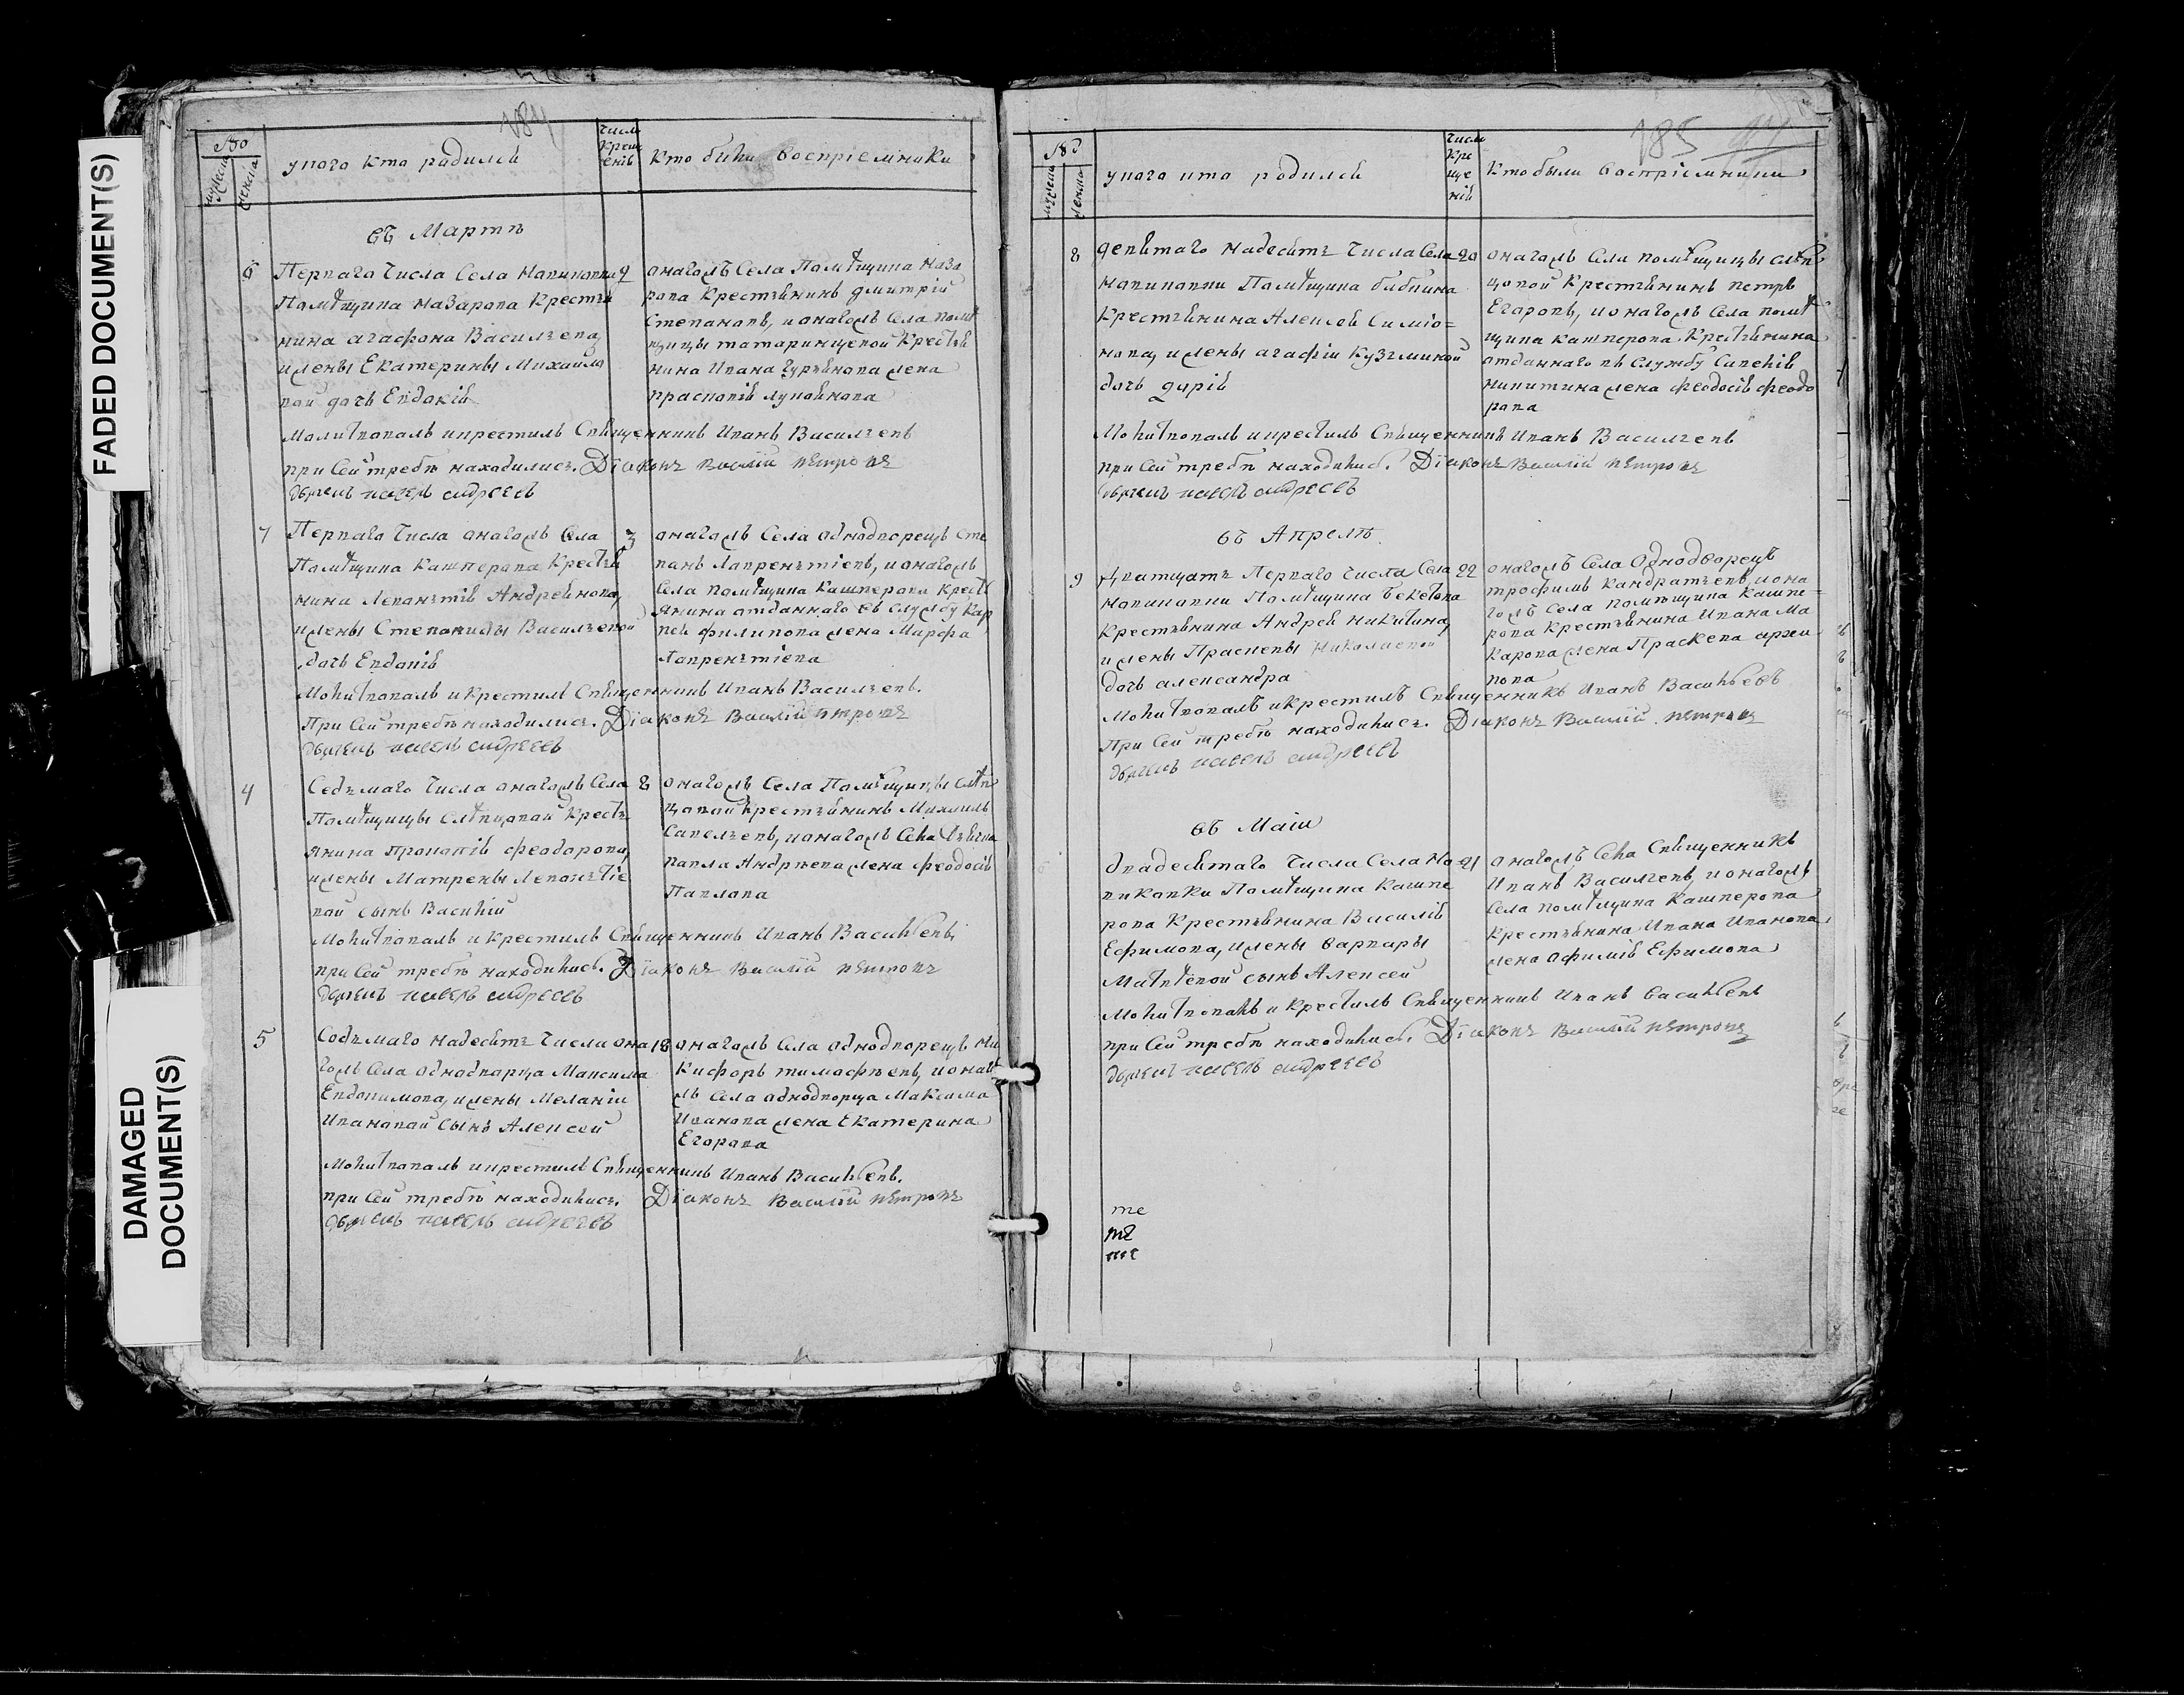 FADED DOCUMENT(S)
DAMAGED
DOCUMENT(S)
184
число
крещ
енiя
у кого кто родился
кто были воспрiемники
мужеска
женска
въ Мартѣ
6
Перваго числа села
2
Помѣщика Назарова крестья
нина Агафона Васильева
и жены Екатерины Михайло
вой дочь Евдокiя
онагожъ села помѣщика Наза
рова крестьянинъ Дмитрiй
Степановъ, и онагожъ села помѣ
щицы Татаринцевой крестья
нина Ивана Гурьянова жена
Прасковiя Лукьянова
Молитвовалъ и крестилъ священникъ Иванъ Васильевъ
при сей требѣ находились. Дiаконъ Василiй Петровъ
дьячекъ Павелъ Андреевъ
7
Перваго числа онагожъ села
3
Помѣщика Кашперова крестья
нина Леонтiя Андреянова,
и жены Степаниды Васильевой
дочь Евдокiя
онагожъ села однодворецъ Сте
панъ Лаврентiевъ, и онагожъ
села помѣщика Кашперова крестья
янина отданнаго въ службу Кар
пея Филипова жена Марфа
Лаврентiева
Молитвовалъ и крестилъ священникъ Иванъ Васильевъ.
При сей требѣ находились. Дiаконъ Василiй Петровъ
дьячекъ Павелъ Андреевъ
4
Седьмаго числа онагожъ села
8
Помѣщицы Слѣпцовой кресть
янина Прокопiя Феодорова,
и жены Матрены Леонтiе
вой сынъ Василiй
онагожъ села помѣщицы Слѣп
цовой крестьянинъ Михаилъ
Савельевъ, и онагожъ села дьячка
Павла Андрѣева жена Феодосiя
Павлова
Молитвовалъ и крестилъ священникъ Иванъ Васильевъ.
при сей требѣ находились. Дiаконъ Василiй Петровъ
дьячекъ Павелъ Андреевъ
5
Седьмаго надесять числа она
18
гожъ села однодворца Максима
Евдокимова, и жены Меланiи
Ивановой сынъ Алексей
онагожъ села однодворецъ Ни
кифоръ Тимофѣевъ, и онаго
жъ села однодворца Максима
Иванова жена Екатерина
Егорова
Молитвовалъ и крестилъ священникъ Иванъ Васильевъ.
при сей требѣ находились. Дiаконъ Василiй Петровъ
дьячекъ Павелъ Андреевъ
185
у кого кто родился
число
кре
ще
нiя
кто были воспрiемники
мужеска
женска
8
девятаго надесять числа села
20
Помѣщика Бибикова
крестьянина Алексея Симiо=
нова, и жены Агафiи Кузьминой
дочь Дарiя
онагожъ села помѣщицы Слѣп
цовой крестьянинъ Петръ
Егоровъ, и онагожъ села помѣ
щика Кашперова крестьянина
отданнаго въ службу Савелiя
Никитина жена Феодосiя Феодо
рова
Молитвовалъ и крестилъ священникъ Иванъ Васильевъ
при сей требѣ находились. Дiаконъ Василiй Петровъ
дьячекъ Павелъ Андреевъ
въ Апрелѣ
9
Дватцать перваго числа села
22
Помѣщика Бекетова
крестьянина Андрея Никитина,
и жены Прасковьи Николаевой
дочь Александра
онагожъ села однодворецъ
Трофимъ Кандратьевъ, и она
гожъ села помѣщика Кашпе=
рова крестьянина Ивана Ма
карова жена Праскева Архи
пова
Молитвовалъ и крестилъ священникъ Иванъ Васильевъ
При сей требѣ находились. Дiаконъ Василiй Петровъ
дьячекъ Павелъ Андреевъ
въ Маiи
двадесятаго числа села
21
Помѣщика Кашпе
рова крестьянина Василiя
Ефимова, и жены Варвары
Матвѣевой сынъ Алексей
онагожъ села священникъ
Иванъ Васильевъ, и онагожъ
села помѣщика Кашперова
крестьянина Ивана Иванова
жена Офимiя Ефимова
Молитвовалъ и крестилъ священникъ Иванъ Васильевъ
при сей требѣ находились. Дiаконъ Василiй Петровъ
дьячекъ Павелъ Андреевъ